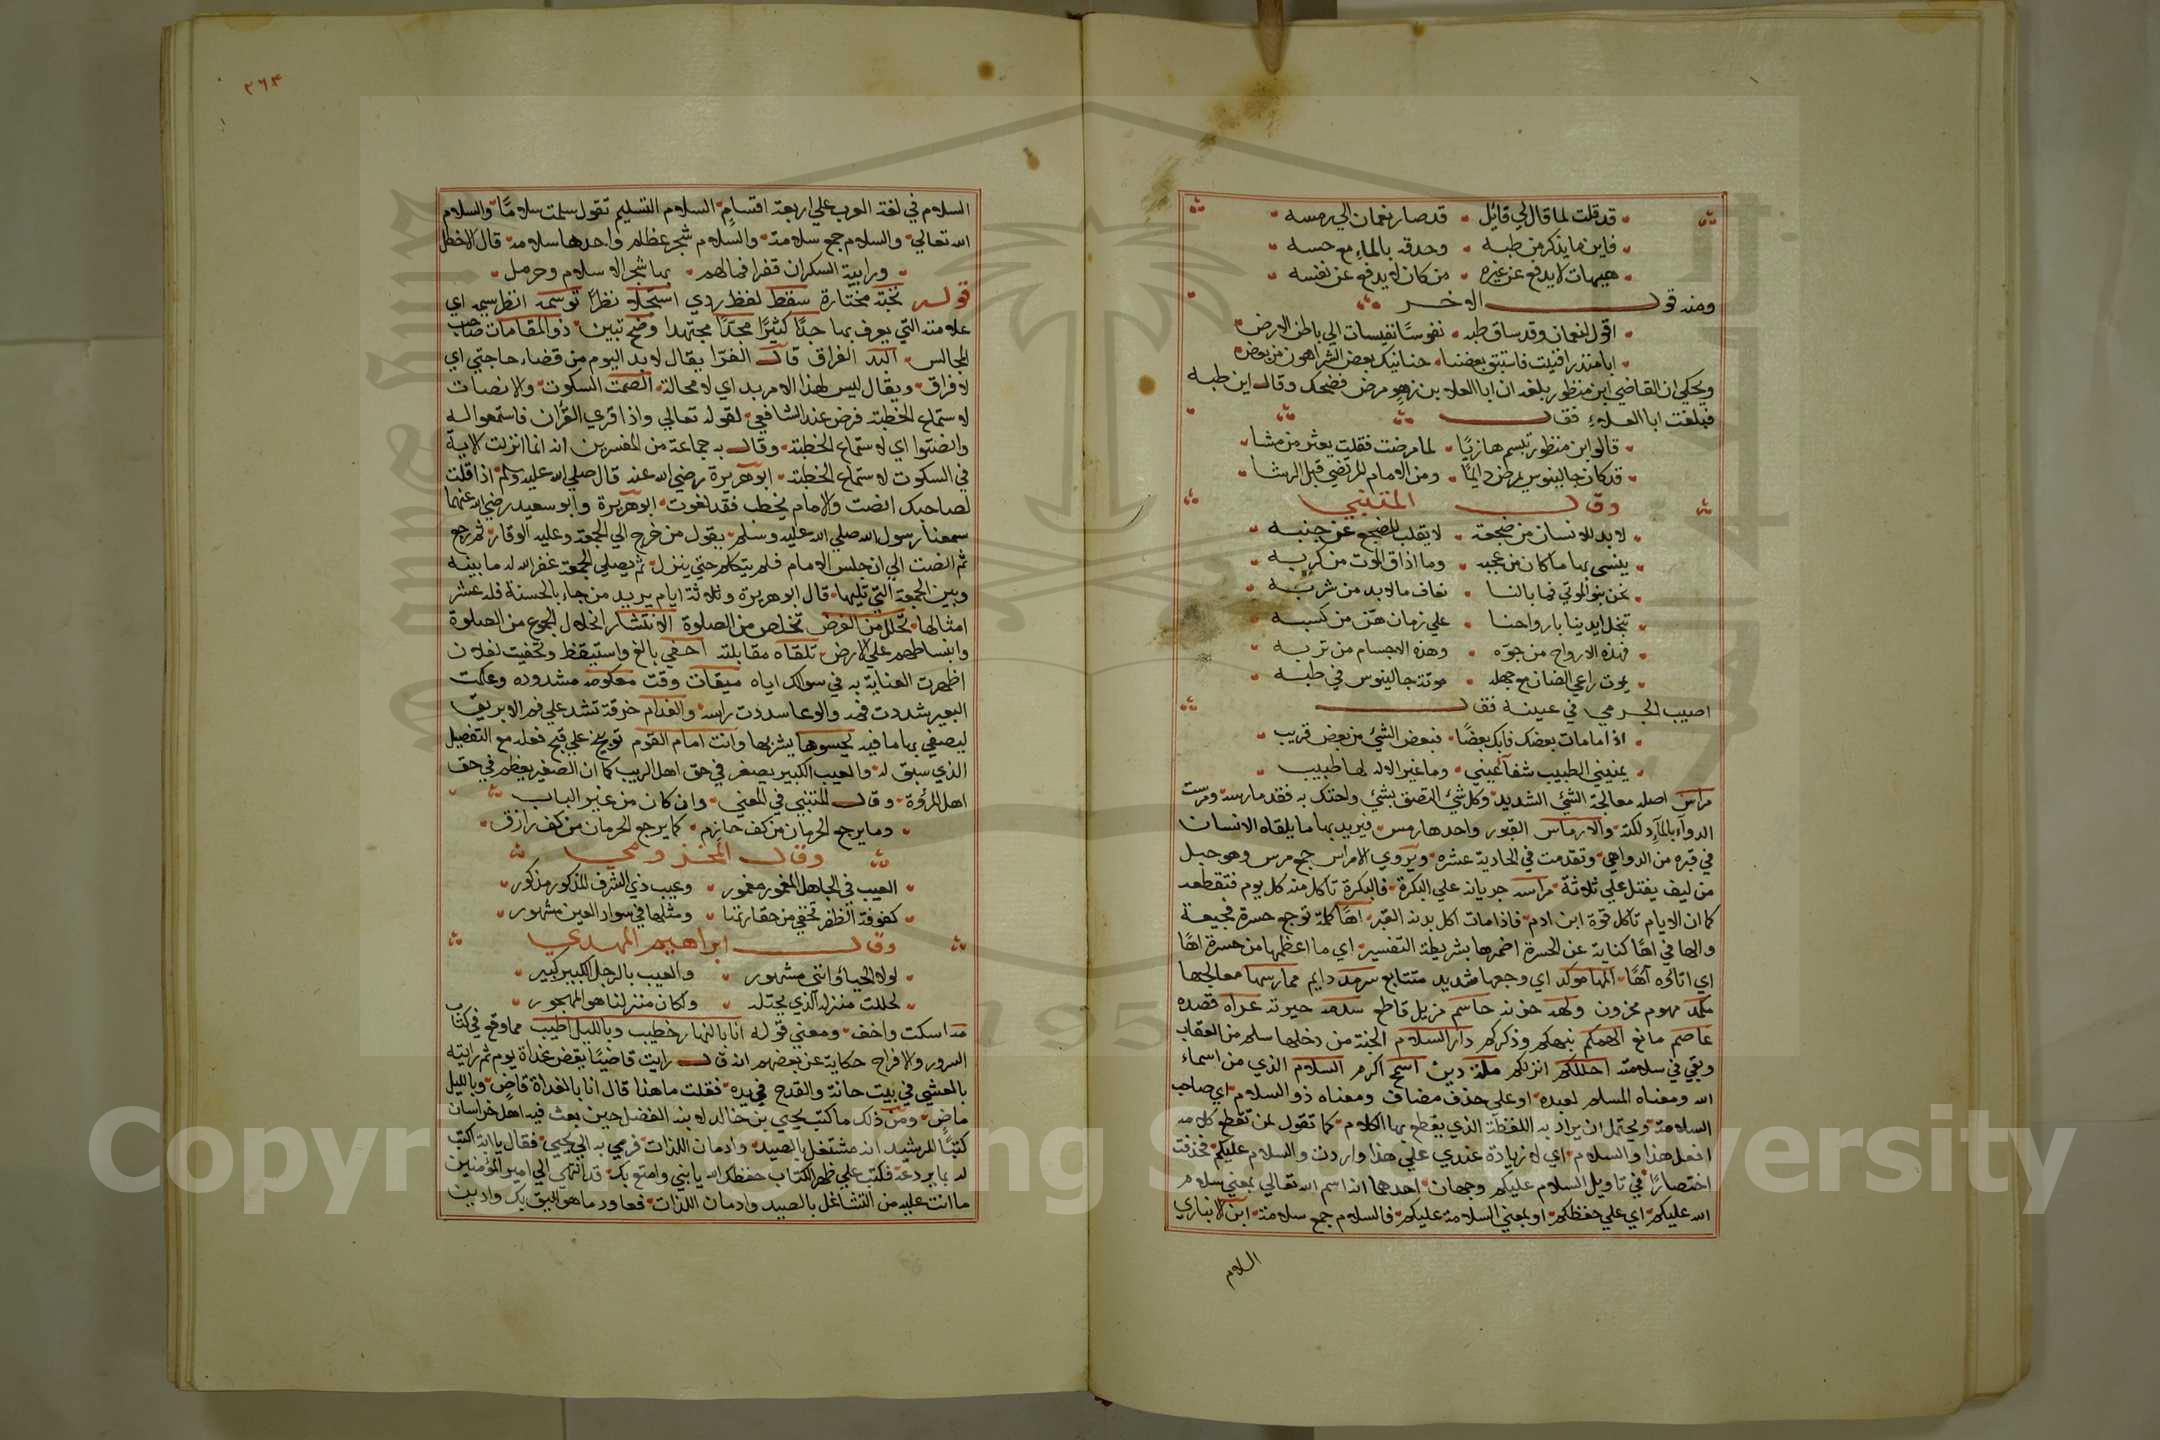 قد قلت لما قال لي قائل قد صار نعمان الي رمسه
فاين ما يذكر من طبه وحدقه بالماء مع حسه
هيهات لا يدفع عن غيره من كان لا يدفع عن نفسه
ومنه قول الاخر
اقول لنعمان وقد ساق طبه نفوسًا نفيسات الي باطن الارض
ابا منذر افنيت فاستبق بعضنا حنانيك بعض الشر اهون من بعض
ويحكي ان القاضي ابن منظور بلغه ان ابا العلا بن زهر مرض فضحك وقال اين طبه
فبلغت ابا العلاء فقال
قالوا ابن منظور تبسم هازيًا لما مرضت فقلت يعثر من مشا
قد كان جالينوس يمرض دايمًا ومن الامام المرتضي قبل الرشا
وقال المتنبي
لا بد للانسان من ضجعة لا يقلب المضجع عن جنبه
ينسي بها ما كان من عجبه وما اذاق الموت من كربه
نحن بنو الموتي فما بالنا نعاف ما لا بد من شربه
تبخل ايدينا بارواحنا علي زمان هن من كسبه
فهذه الارواح من جوه وهذه الاجسام من تربه
يموت راعي الضان مع جهله موتة جالينوس في طبه
اصيب الجرمي في عينه فقال
اذا ما مات بعضك فابك بعضًا فبعض الشئ من بعض قريب
يمنيني الطبيب شفا عيني وما غير الاله لها طبيب
مراس اصله معالجة الشئ الشديد وكل شئ التصق بشئ واحتك به فقد مارسه ومرست
الدواء بالماء دلكته والارماس القبور واحدها رمس فيريد بها ما يلقاه الانسان
في قبره من الدواهي وتقدمت في الحادية عشره ويروي الامراس جمع مرس وهو حبل
من ليف يفتل علي ثلاثة مراسه جريانه علي البكرة فالبكرة تاكل منه كل يوم فتقطعه
كما ان الايام تاكل قوة ابن ادم فاذا مات اكل بدنه القبر اها كلمة توجع حسرة فجيعة
والها في اها كناية عن الحسرة اضمرها بشريطة التفسير اي ما اعظمها من حسرة اها
اي اتاوه آها المها موكد اي وجعها شديد متتابع سرمد دايم ممارسها معالجها
مكمد مهموم محزون ولهه حزنه حاسم مزيل قاطع سدمه حيرته عراه قصده
عاصم مانع الهمكم نبهكم وذكركم دار السلام الجنة من دخلها سلم من العقاب
وبقي في سلامته احللكم انزلكم ملة دين اسمح اكرم السلام الذي من اسماء
الله ومعناه المسلم لعبده او علي حذف مضاف ومعناه ذو السلام اي صاحب
السلامة ويحتمل ان يراد به اللفظة الذي يقطع بها الكلام كما تقول لمن تقطع كلامه
افعل هذا والسلام اي لا زيادة عندي علي هذا واردت والسلام عليكم فحذفت
اختصارًا في تاويل السلام عليكم وجهان احدهما انه اسم الله تعالي بمعني سلام
الله عليكم اي علي حفظكم او بمعني السلامة عليكم فالسلام جمع سلامة ابن الانباري
السلام
٣٦٣
السلام في لغة العرب علي اربعة اقسام السلام التسليم تقول سلمت سلامًا والسلام
الله تعالي والسلام جمع سلامة والسلام شجر عظام واحدها سلامة قال الاخطل
ورابية السكران قفرا فما لهم بها شجر الا سلام وحرمل
قوله نخبة مختارة سقط لفظ ردي استجلاه نظرًا توسمه انظر سيمه اي
علامته التي يعرف بها جدًا كثيرًا مجدًا مجتهدا وضح تبين ذو المقامات صاحب
المجالس البد الفراق قال الفرا يقال لا بد اليوم من قضاء حاجتي اي
لا فراق ويقال ليس لهذا الامر بد اي لا محالة الصمت السكوت والانصات
لاستماع الخطبة فرض عند الشافعي لقوله تعالي واذا قري القرآن فاستمعوا له
وانصتوا اي لاستماع الخطبة وقال به جماعة من المفسرين انه انما انزلت الاية
في السكوت لاستماع الخطبة ابو هريرة رضي الله عنه قال صلي الله عليه وسلم اذا قلت
لصاحبك انصت والامام يخطب فقد لغوت ابو هريرة وابو سعيد رضي الله عنهما
سمعنا رسول الله صلي الله عليه وسلم يقول من خرج الي الجمعة وعليه الوقار ثم رجع
ثم انصت الي ان جلس الامام فلم يتكلم حتي ينزل ثم يصلي الجمعة غفر الله له ما بينه
وبين الجمعة التي تليها قال ابو هريرة وثلاثة ايام يريد من جاء بالحسنة فله عشر
امثالها تحلل من الفرض تخلص من الصلوة الانتشار انحلال الجمع من الصلوة
وانبساطهم علي الارض تلقاه مقابلته احفي بالغ واستيقظ وتحفيت لفلان
اظهرت العناية به في سوالك اياه ميقات وقت معكومه مشدوده وعكمت
البعير شددت فمه والوعا سددت راسه والفدام خرقة تشد علي فم الابريق
ليصفي بها ما فيه يحسوها يشربها وانت امام القوم توبيخ علي قبح فعله مع التفضيل
الذي سبق له والعيب الكبير يصغر في حق اهل الريب كما ان الصغير يعظم في حق
اهل المروة وقال المتنبي في المعني وان كان من غير الباب
وما يرجع الحرمان من كف حازم كما يرجع الحرمان من كف رازق
وقال المخزومي
العيب في الجاهل المغمور مغمور وعيب ذي الشرف المذكور مذكور
كفوفة الظفر تخفي من حقارتها ومثلها في سواد العين مشهور
وقال ابراهيم المهدي
لولا الحياء وانني مشهور والعيب بالرجل الكبير كبير
لحللت منزله الذي يحتله ولكان منزلنا هو المهجور
مه اسكت واخف ومعني قوله انا بالنهار خطيب وبالليل اطيب مما وقع في كتاب
السرور والافراح حكاية عن بعضهم انه قال رايت قاضيًا يقص غداة يوم ثم رايته
بالعشي في بيت حانة والقدح في يده فقلت ما هذا قال انا بالغداة قاص وبالليل
ماص ومن ذلك ما كتب يحيي بن خالد لابنه الفضل حين بعث فيه اهل خراسان
كتبًا للرشيد انه مشتغل بالصيد وادمان اللذات فرمي به الي يحيي فقال يا ابة اكتب
له بما يردعه فكتب علي ظهر الكتاب حفظك الله يا بني وامتع بك قد انتهي الي امير المؤمنين
ما انت عليه من التشاغل بالصيد وادمان اللذات فعاود ما هو اليق بك وازين
Copyright © King Saud University